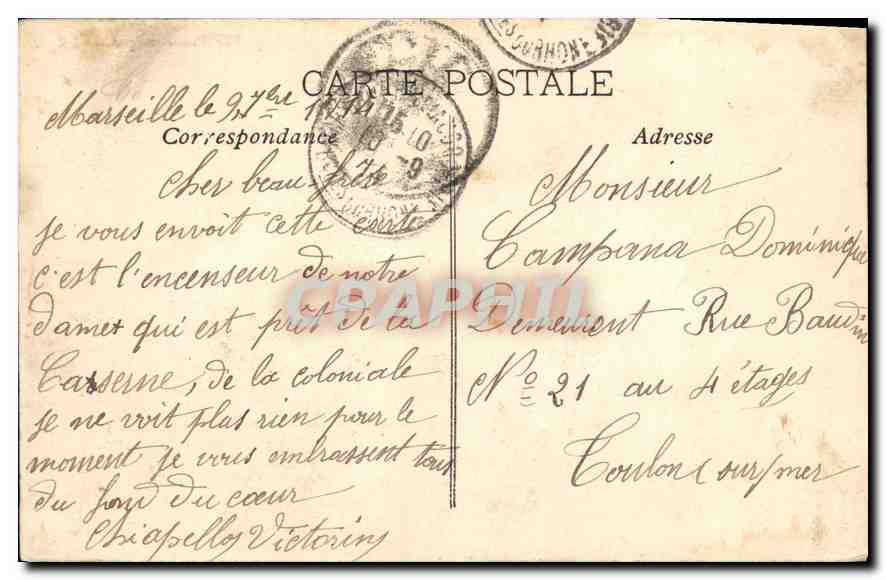 CARTE POSTALE
Marseille le 9 7bre 1914
Correspondance
Cher beau-frère
je vous envoit cette carte
c'est l'encenseur de notre
dame qui est prêt de la
Caserne, de la coloniale
je ne voit plus rien pour le
moment je vous embrassent tous
du fond du cœur
Chiapello Victorin
Adresse
Monsieur
Campana Dominique
Demeurent Rue Baudin
No 21 au 4 étages
Toulon sur mer
DU-RHÔNE
15 40
10 - 9
CPAPHIL